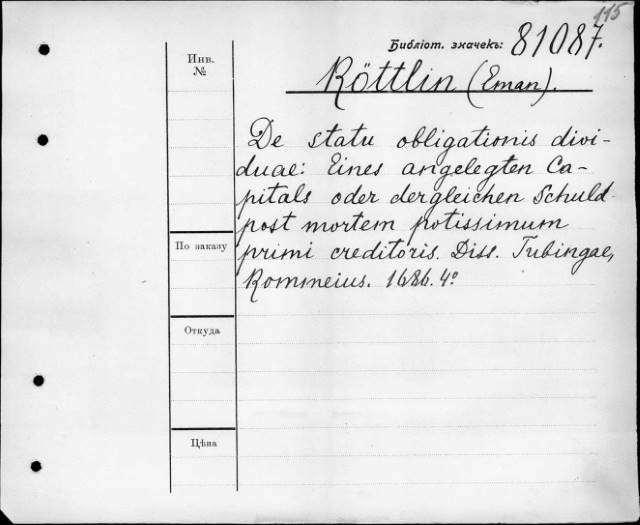 115
Библіот. значекъ: 81087.
Инв.
№
Röttlin (Eman).
De statu obligationis divi-
duae: Eines angelegten Ca-
pitals oder dergleichen Schuld
post mortem potissimum
По заказу
primi creditoris. Diss. Tubingae,
Rommeius. 1686. 4º
Откуда
Цѣна